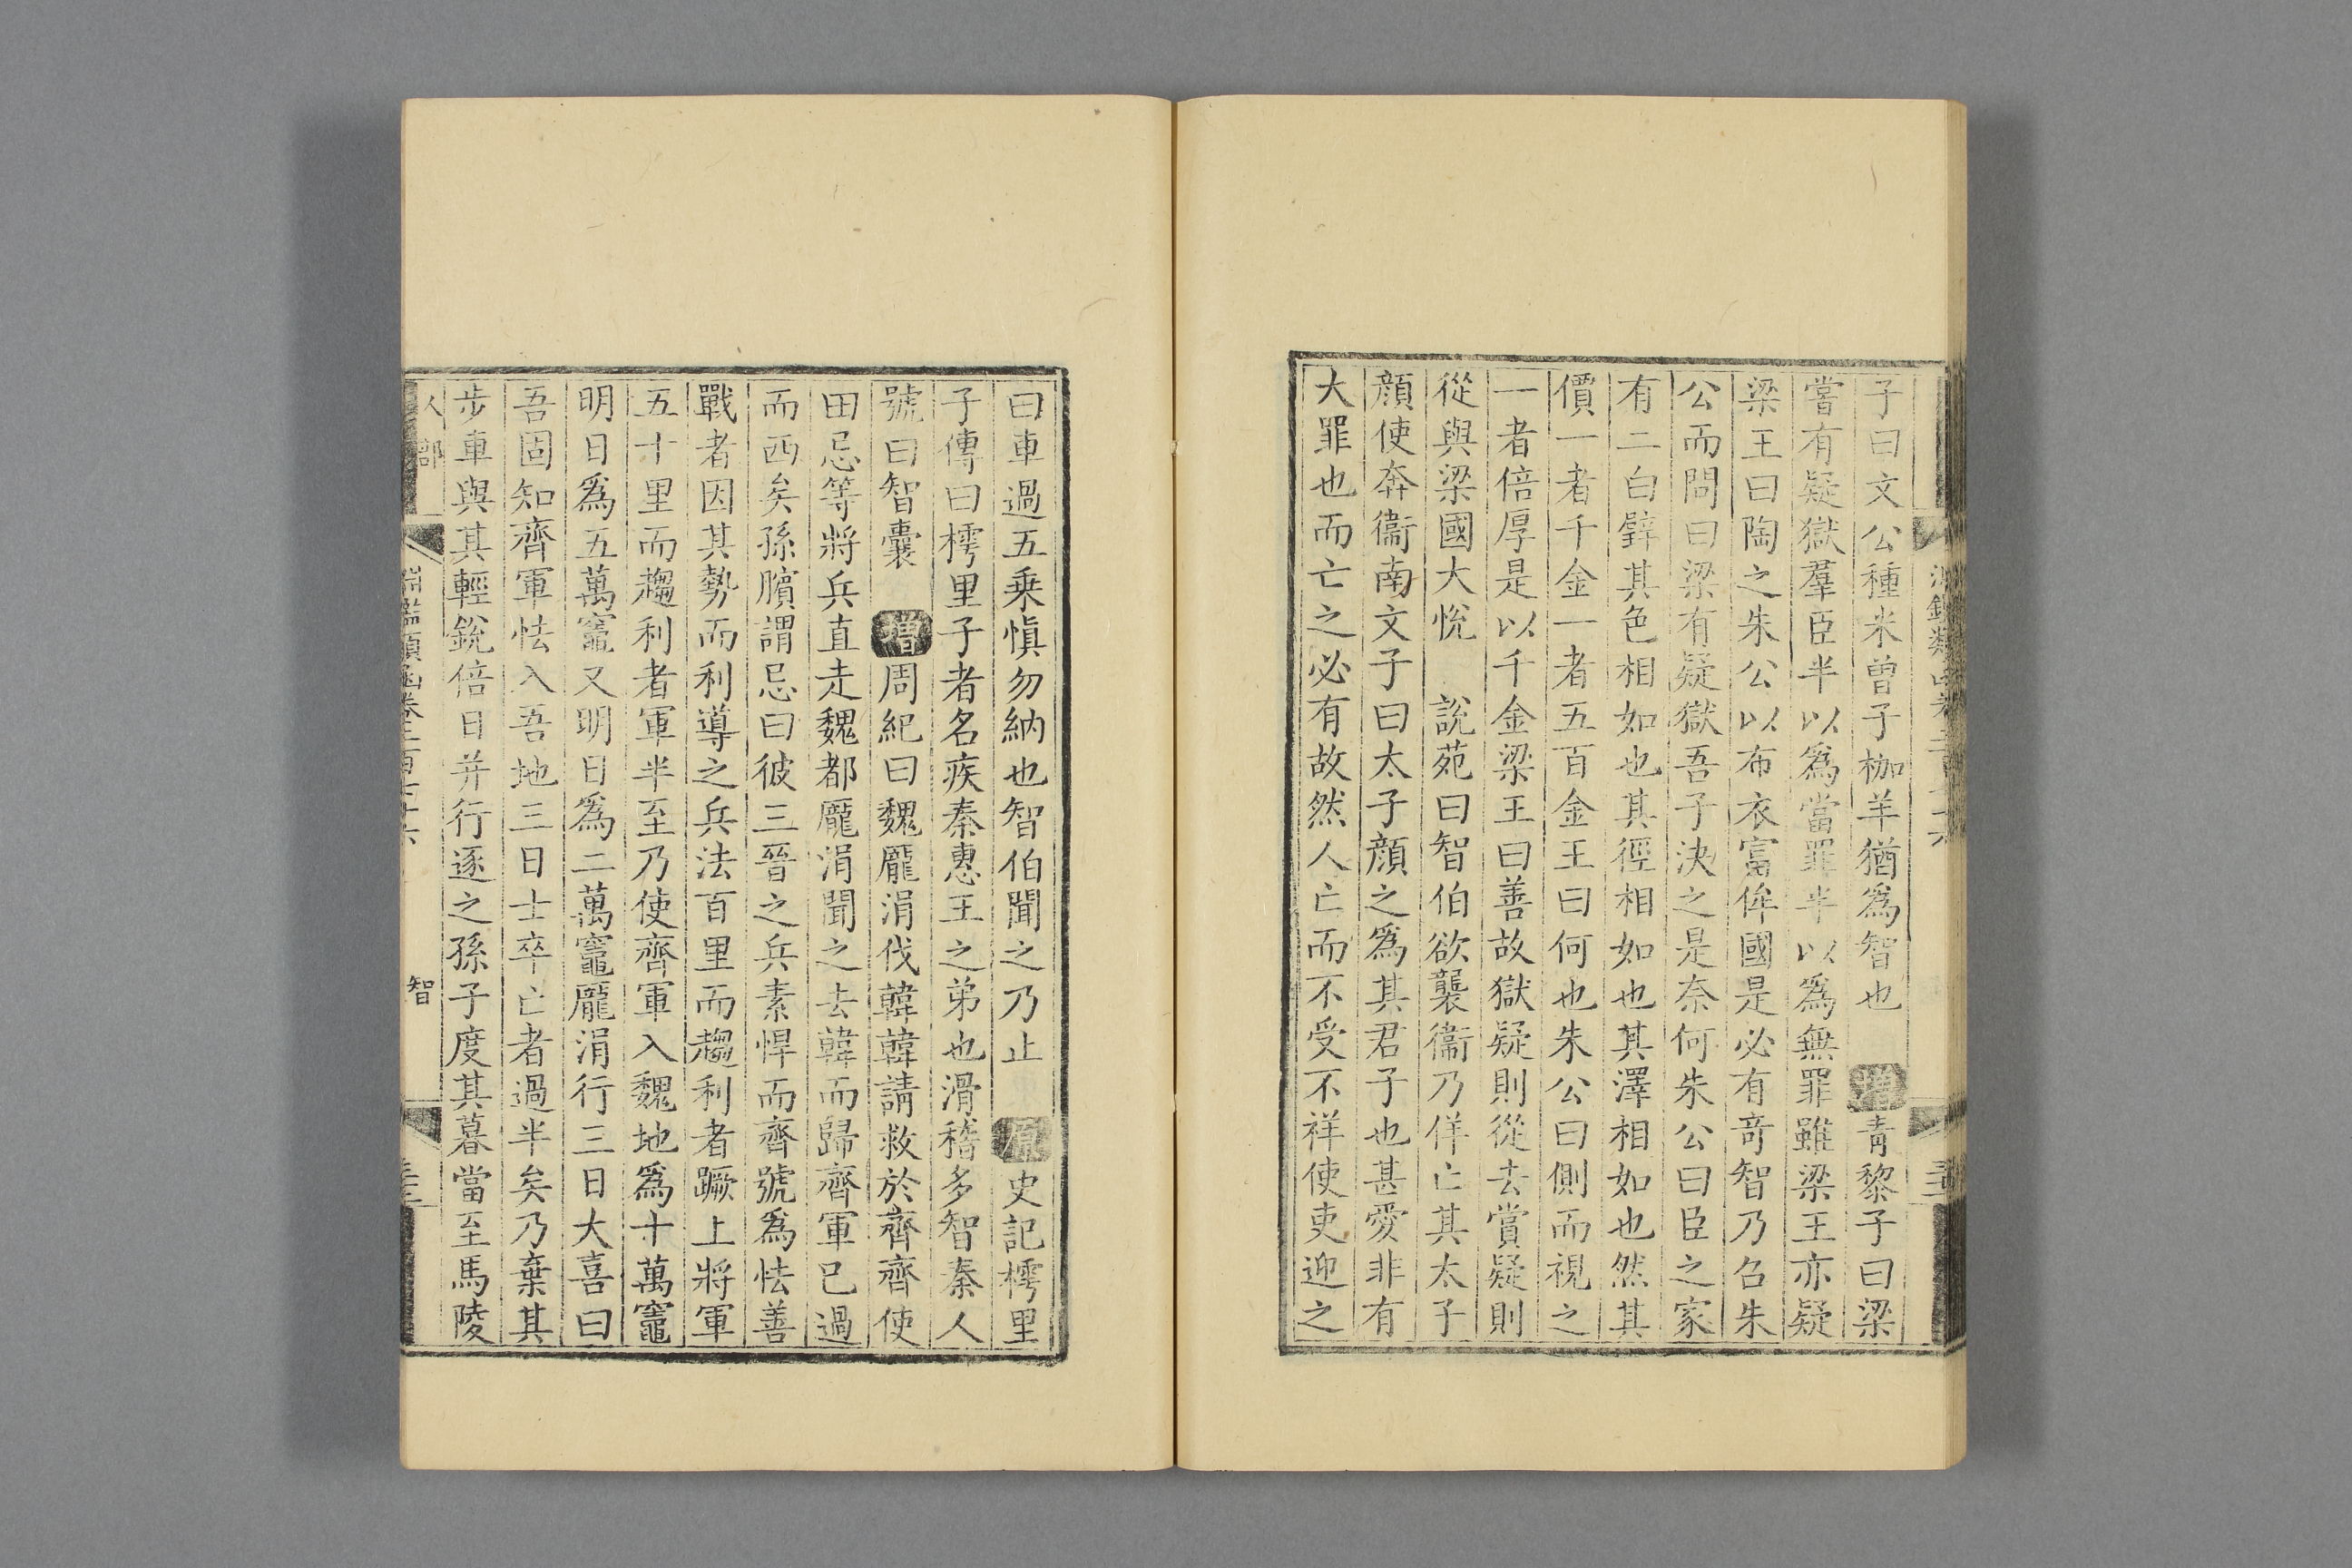 子曰文公種米曾子枷羊猶爲智也 增青黎子曰梁
嘗有疑獄羣臣半以爲當罪半以爲無罪雖梁王亦疑
梁王曰陶之朱公以布衣富侔國是必有奇智乃召朱
公而問曰梁有疑獄吾子決之是奈何朱公曰臣之家
有二白璧其色相如也其徑相如也其澤相如也然其
價一者千金一者五百金王曰何也朱公曰側而視之
一者倍厚是以千金梁王曰善故獄疑則從去賞疑則
從與梁國大悅 說苑曰智伯欲襲衞乃佯亡其太子
顔使奔衞南文子曰太子顔之爲其君子也甚愛非有
大罪也而亡之必有故然人亡而不受不祥使吏迎之
曰車過五乗愼勿納也智伯聞之乃止 原史記樗里
子傳曰樗里子者名疾秦惠王之弟也滑稽多智秦人
號曰智囊 增周紀曰魏龐涓伐韓韓請救於齊齊使
田忌等將兵直走魏都龐涓聞之去韓而歸齊軍已過
而西矣孫臏謂忌曰彼三晉之兵素悍而齊號爲怯善
戰者因其勢而利導之兵法百里而趨利者蹶上將軍
五十里而趨利者軍半至乃使齊軍入魏地爲十萬竈
明日爲五萬竈又明日爲二萬竈龐涓行三日大喜曰
吾固知齊軍怯入吾地三日士卒亡者過半矣乃棄其
步車與其輕銳倍日并行逐之孫子度其暮當至馬陵
人部 淵鑑類函卷二百七十六 智